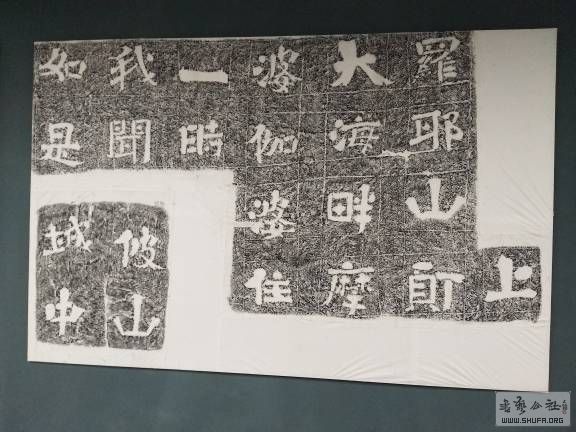 如是
我聞
一時
婆伽婆住
大海畔摩
羅耶山頂
上
彼山
城中
書藝公社
WWW.SHUFA.ORG